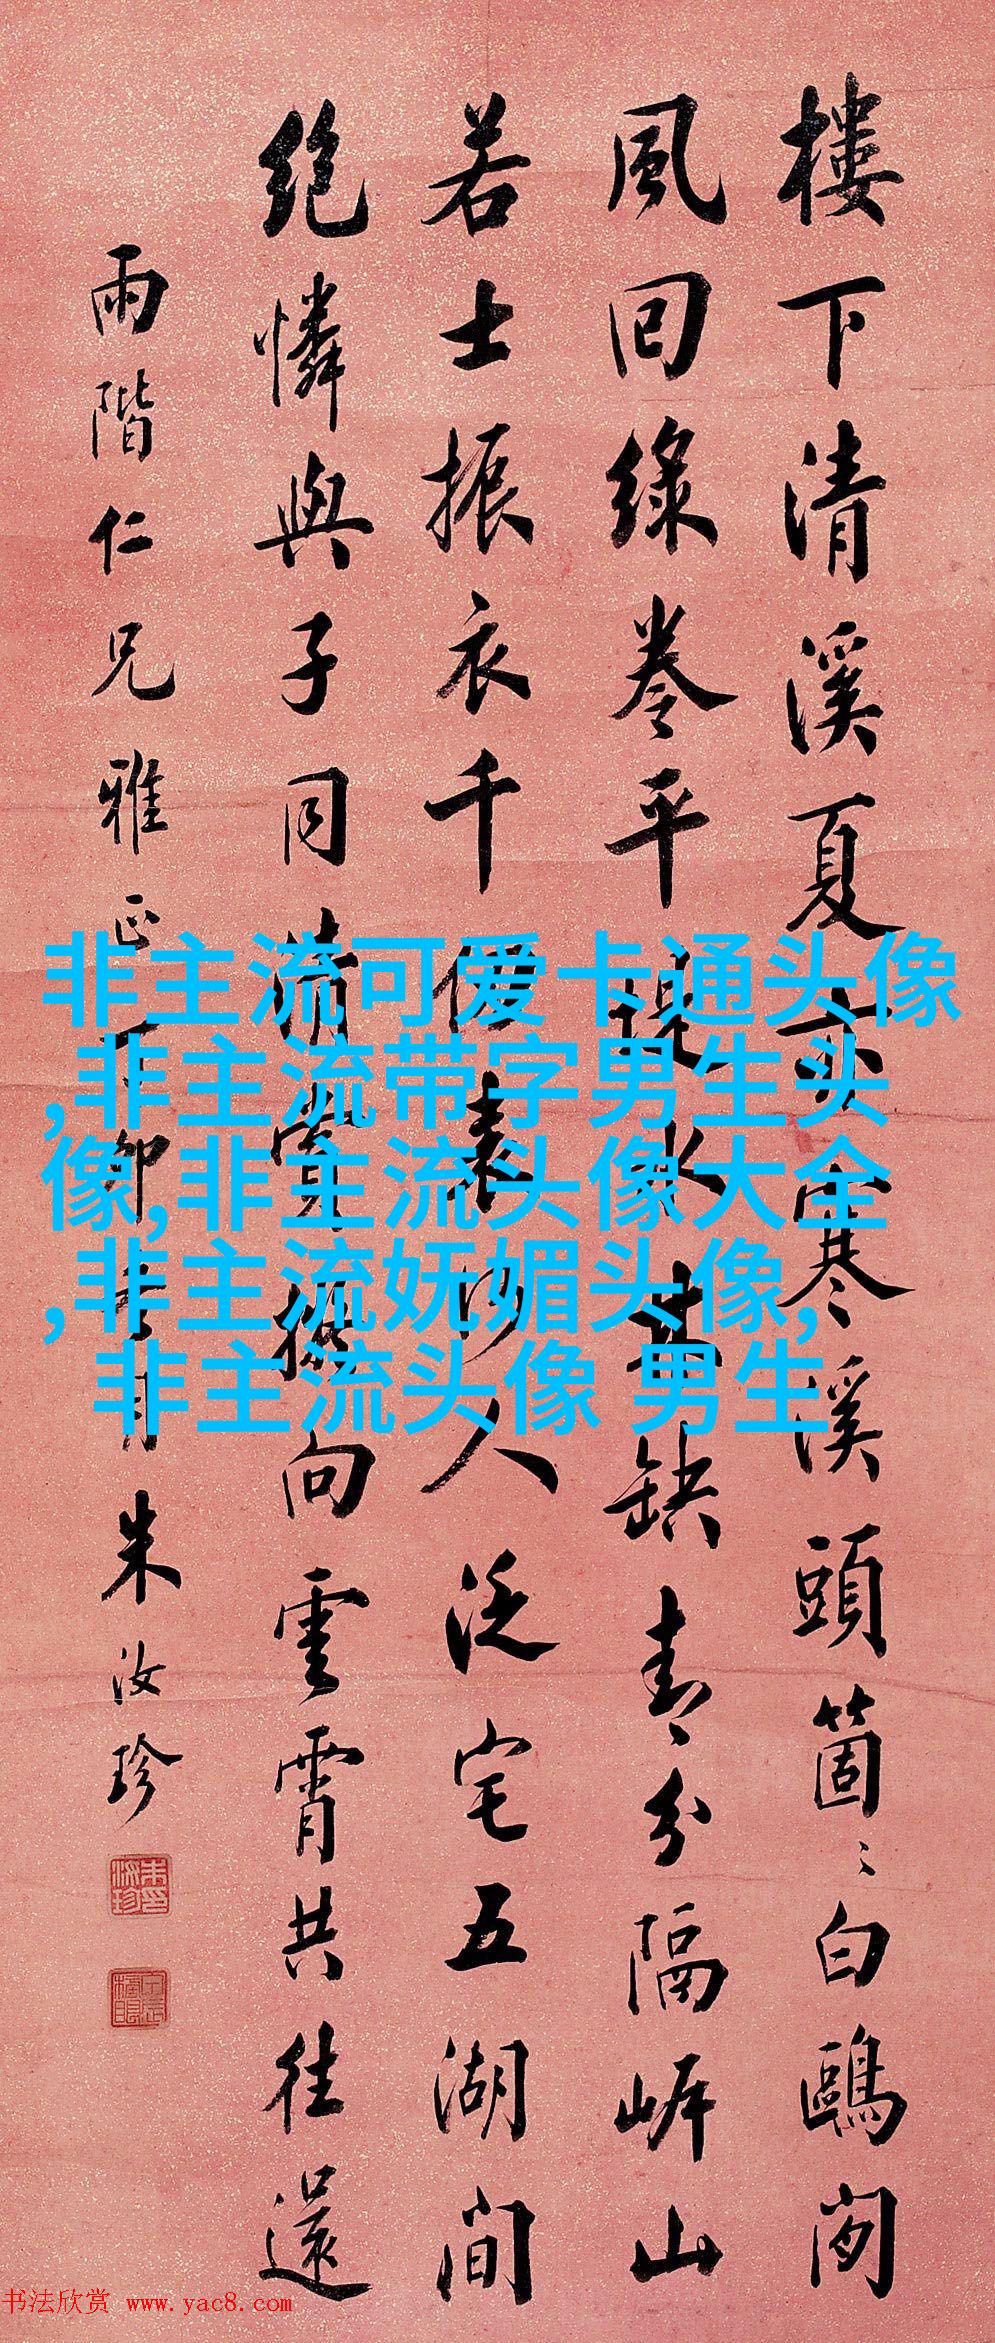 樓下清溪夏亦寒溪頭箇〻白鷗閑
風回綠卷平堤水缺青分隔岸山
若士振衣千仞表何人泛宅五湖間
絕憐與子同清賞擬向雲霄共往還
雨階仁兄雅正丁卯月朱汝珍
非主流可爱卡通头像
,非主流带字男生头
像,非主流头像大全
,非主流妩媚头像,
非主流头像 男生
书法欣赏 www.yac8.com